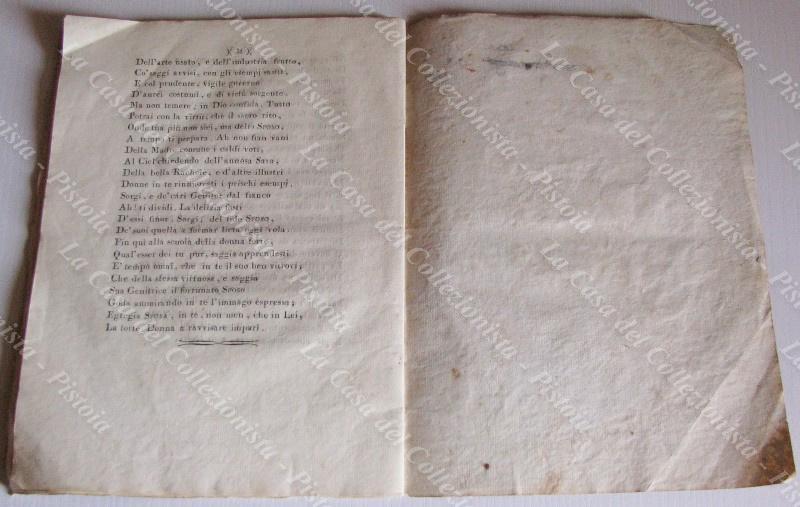 Dell'arte usato, e dell'industria frutto,
Co' saggi avvisi, con gli esempi
E col prudente, vigile governo
D'aurei costumi, e di virtù sorgente.
Ma non temere; in Dio confida. Tutto
Potrai con la virtù, che il sacro rito,
Onde tua più non sei, ma dello Sposo,
A tempo ti prepara. Ah non fian vani
Della Madre comune i caldi voti,
Al Ciel chiedendo dell'annosa Sara,
Della bella Rachele, e d'altre illustri
Donne in te rinnovesi i prischi esempi.
Sorgi, e de' cari Genitor dal fianco
Ah! ti dividi. La delizia fosti
D'essi finor. Sorgi; del tuo Sposo,
De' suoi quella a formar lieta oggi vola.
Fin qui alla scuola della donna forte,
Qual'esser dei tu pur, saggia apprendesti
E' tempo omai, che in te il suo ben ritrovi;
Che della stessa virtuosa, e saggia
Sua Genitrice il fortunato Sposo
Goda ammirando in te l'immago espressa;
Egregia Sposa, in te, non men, che in Lei,
La forte Donna a ravvisare impari.
La Casa del Collezionista - Pistoia